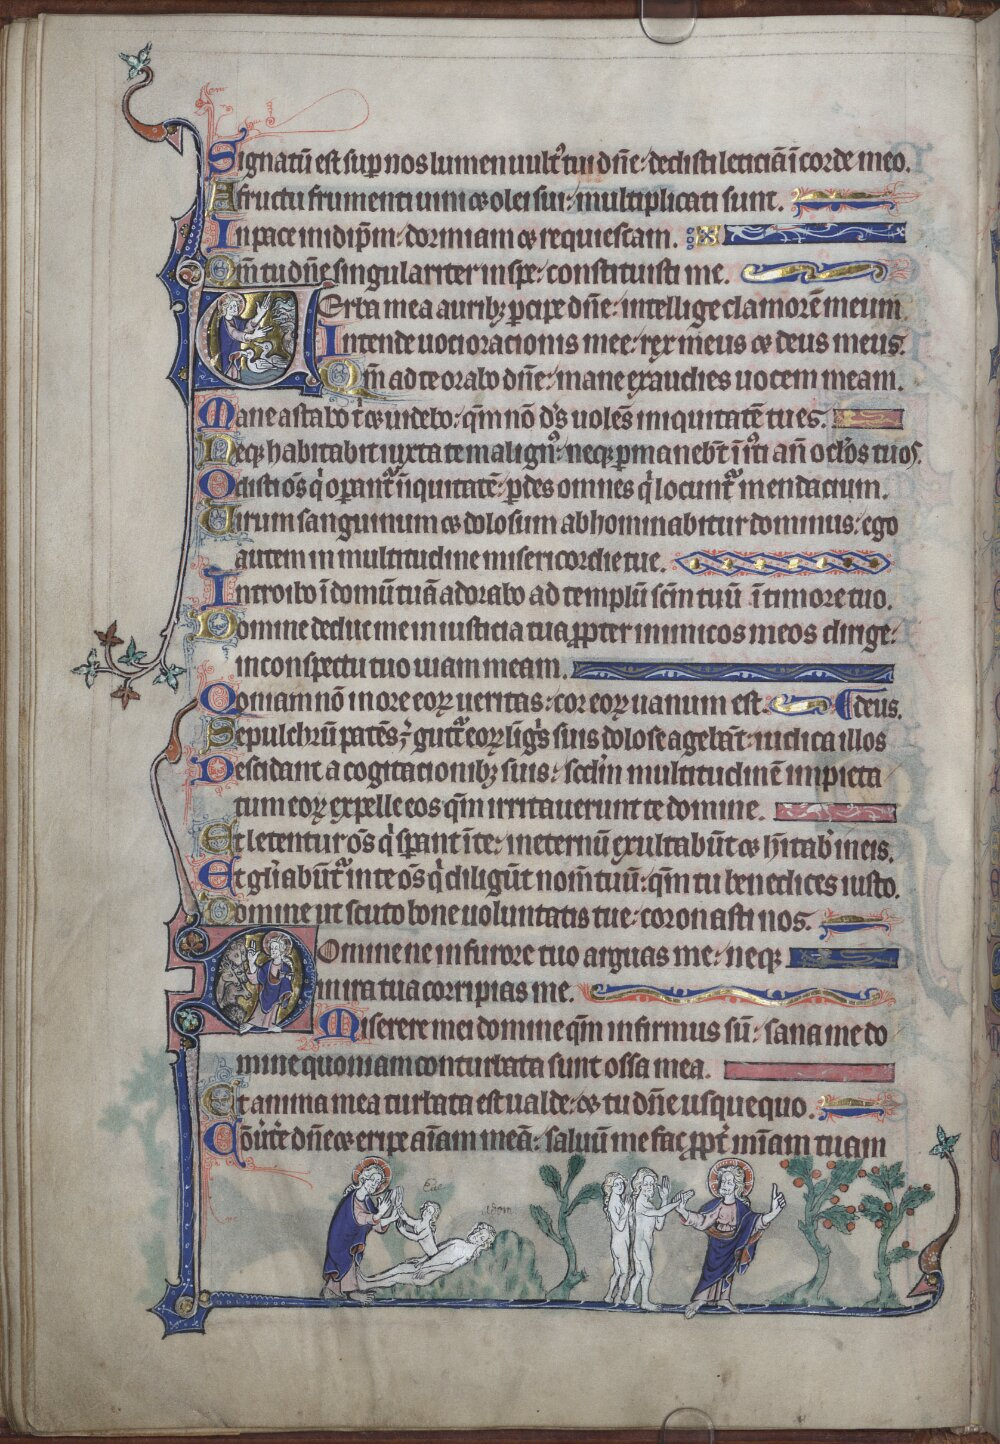 Signatū est sup nos lumen uult᷒ tui dn̄e: dedisti leticiā ī corde meo.
A fructu frumenti uini ⁊ olei sui: multiplicati sunt.
In pace in idip̄m: dormiam ⁊ requiescam.
Qm̄ tu dn̄e singulariter in spe: constituisti me.
Uerba mea auribꝫ ꝑcipe dn̄e: intellige clamorē meum
Intende uoci oracionis mee: rex meus ⁊ deus meus.
Qm̄ ad te orabo dn̄e: mane exaudies uocem meam.
Mane astabo t̄ ⁊ uidebo: qm̄ nō d̄s uolēs iniquitatē tu es.
Neqꝫ habitabit iuxta te malign᷒: neqꝫ ꝑmanebūt īiusti an̄ oc̄los tuos.
Odisti os̄ q̇ oꝑant᷑ īiquitatē: ꝑdes omnes q̇ locunt᷑ mendacium.
Uirum sanguinum ⁊ dolosum abhominabitur dominus: ego
autem in multitudine misericordie tue.
Introibo ī domū tuā adorabo ad templū sc̄m tuū ī timore tuo.
Domine deduc me in iusticia tua ꝓpter inimicos meos dirige:
in conspectu tuo uiam meam.
Qoniam nō in ore eoꝝ ueritas: cor eoꝝ uanum est. deus.
Sepulchrū patēs ē gutt᷑ eoꝝ līgis suis dolose agebāt: iudica illos
Descidant a cogitacionibꝫ suis: scd̄m multitudinē impieta
tum eoꝝ expelle eos qm̄ irritauerunt te domine.
Et letentur os̄ q̇ sꝑant ī te: in eternū exultabūt ⁊ h̄itab̄ in eis.
Et gl̄iabūt᷑ in te os̄ q̇ diligūt nom̄ tuū: qm̄ tu benedices iusto.
Domine ut scuto bone uoluntatis tue: coronasti nos.
Domine ne in furore tuo arguas me: neqꝫ
in ira tua corripias me.
Miserere mei domine qm̄ infirmus sū: sana me do
mine quoniam conturbata sunt ossa mea.
Et anima mea turbata est ualde: ⁊ tu dn̄e usquequo.
Cōu̇te dn̄e ⁊ eripe aīam meā: saluū me fac ꝓpt̄ mīam tuam
Eue
Adam